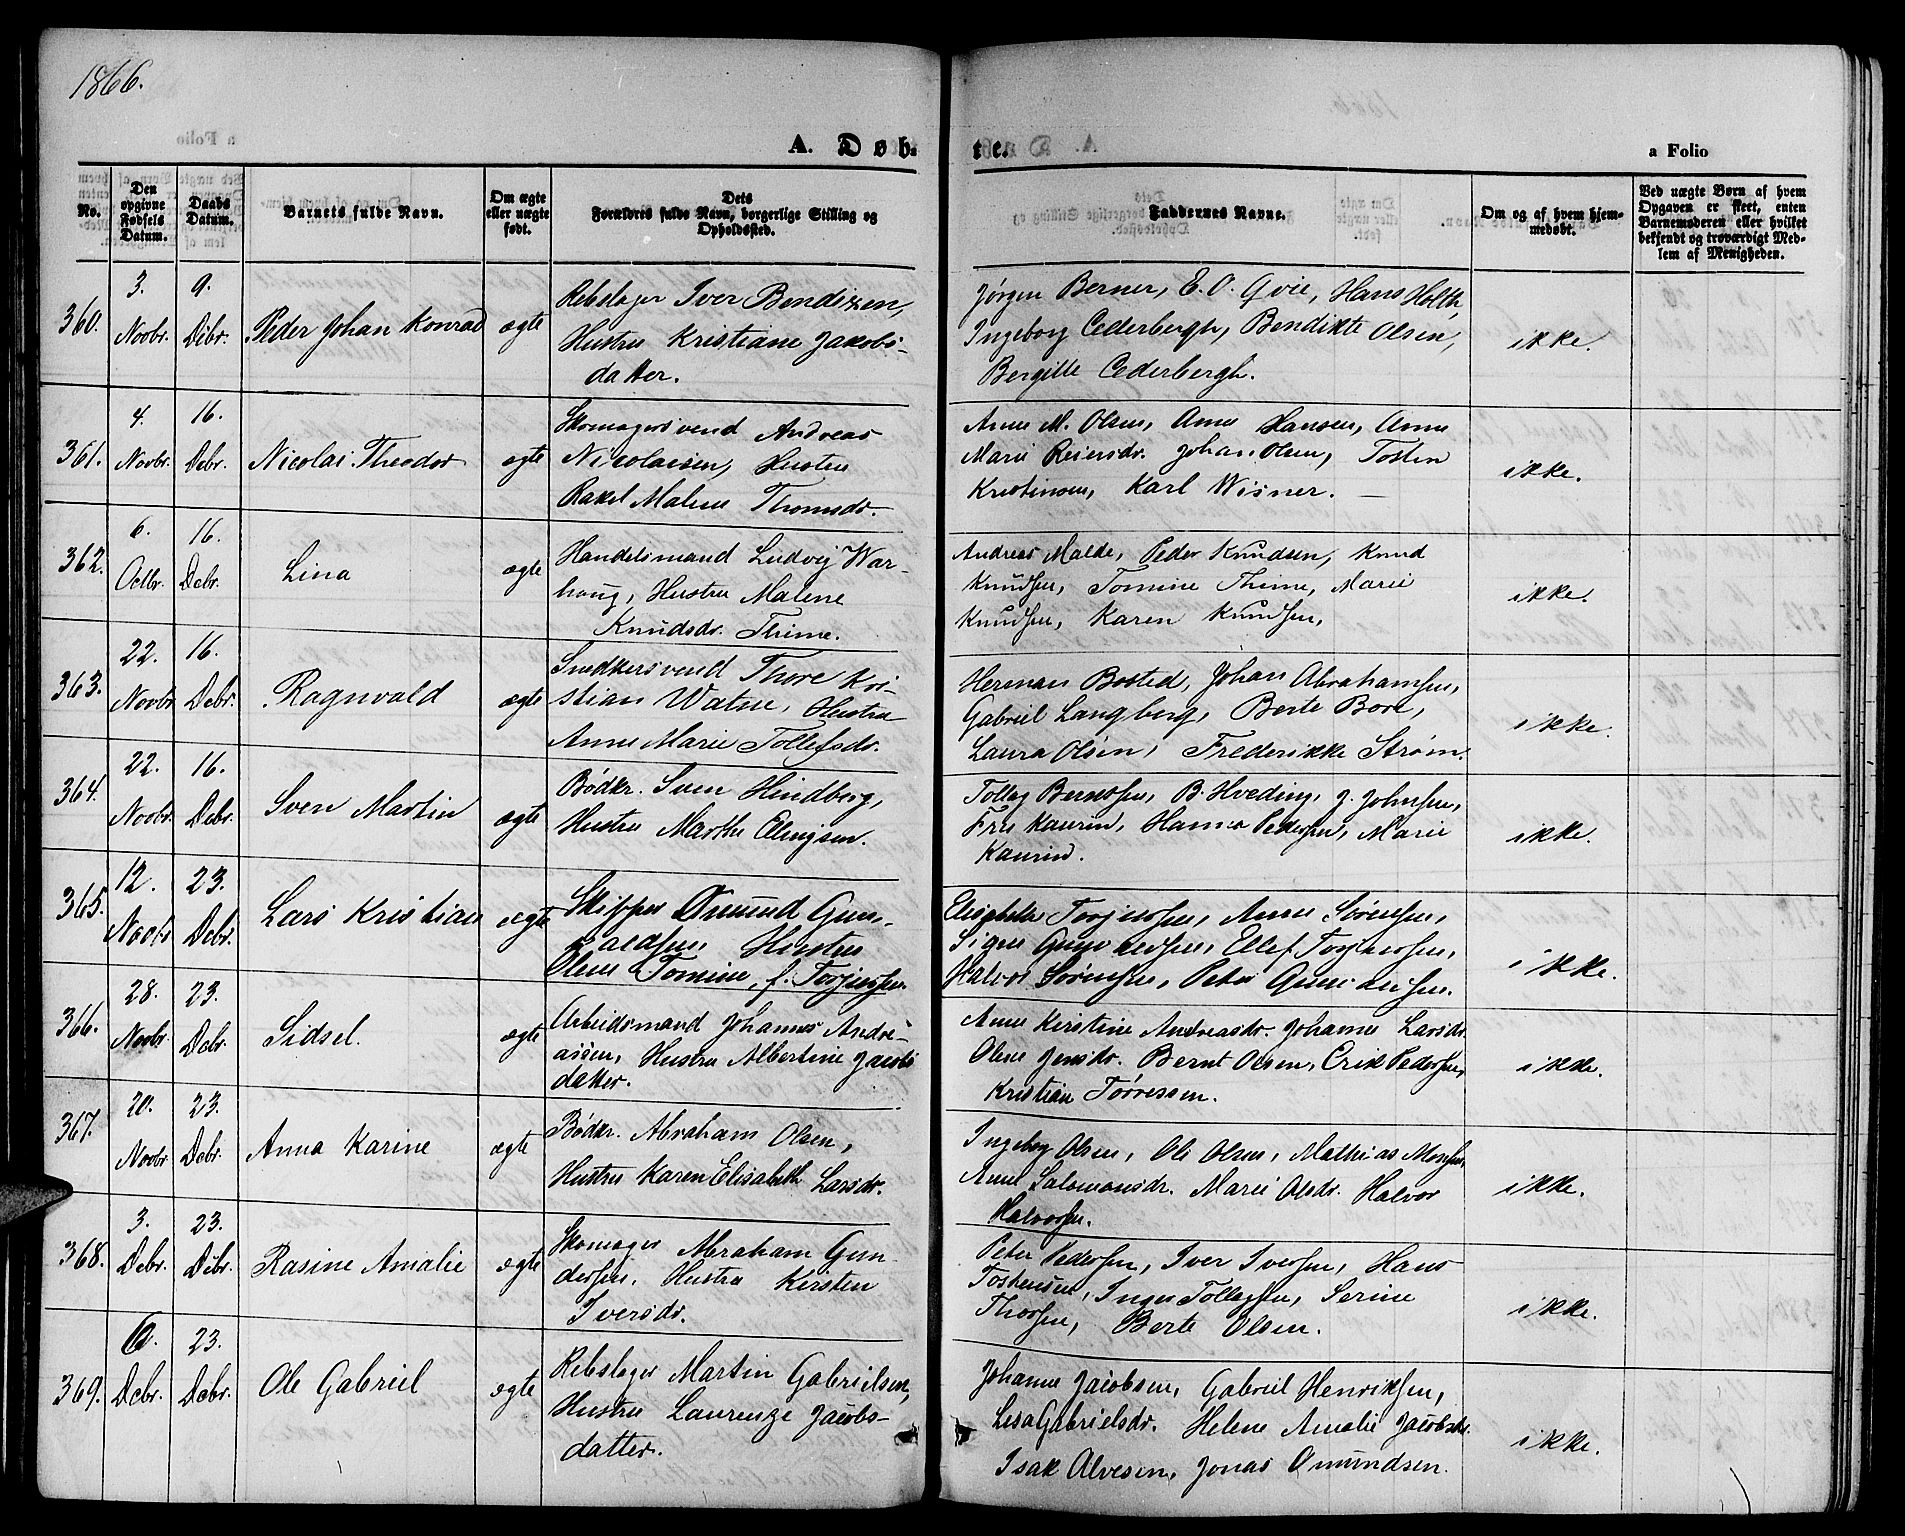 1866.
A. Døb- te.
a Folio
No.
Den opgivne Fødsels Datum.
Daabs Datum.
Barnets fulde Navn.
Om ægte eller uægte født.
Dets Forældres fulde Navn, borgerlige Stilling og Opholdssted.
Faddernes Navne.
Om og af hvem hjem-
medøbt.
Ved uægte Børn af hvem
Opgaven er skeet, enten
Barnemoderen eller hvilket
bekjendt og troværdigt Med-
lem af Menigheden.
360.
3. Novbr.
9. Dcbr.
Peder Johan Konrad
ægte
Rebslager Iver Bendixen,
Hustru Kristiane Jakobs-
datter.
Jørgen Berner, E. O. Qvie, Hans Holth,
Ingeborg Cederbergh, Bendikte Olsen,
Bergitte Cederbergh.
ikke.
361.
4. Novbr.
16. Dcbr.
Nicolai Theodor
ægte
Skomagersvend Andreas
Nicolaisen, Hustru
Rakel Malene Thomsdr.
Anne M. Olsen, Anne Hansen, Anne
Marie Reiersdr. Johan Olsen, Tosten
Kristinsen, Karl Wisner. —
ikke.
362.
6. Octbr.
16. Dcbr.
Lina
ægte
Handelsmand Ludvig War-
haug, Hustru Malene
Knudsdr. Thime.
Andreas Malde, Peder Knudsen, Knud
Knudsen, Tomine Thime, Marie
Knudsen, Karen Knudsen,
ikke.
363.
22. Novbr
16. Dcbr.
Ragnvald
ægte
Snedkersvend Thore Kri-
stian Watne, Hustru
Anne Marie Tollefsdr.
Herman Bosted, Johan Abrahamsen,
Gabriel Langberg, Berte Bore,
Laura Olsen, Frederikke Strøm.
ikke.
364.
22. Novbr.
16. Dcbr.
Sven Martin
ægte
Bødkr. Sven Hindberg,
Hustru Marthe Elingsen.
Tollag Berntsen, B. Hveding, J. Johnsen,
Fru Kaurin, Hanna Pedersen, Marie
Kaurin.
ikke.
365.
12. Novbr
23. Dcbr.
Lars Kristian
ægte
Skipper Omund Gun-
valdsen Hustru
Olene Tomine, f. Torjussen.
Elisabeth Torjussen, Anne Sørensen,
Signe Gunvaldsen, Ellef Torjussen,
Halvor Sørensen, Peter Gunvaldsen.
ikke.
366.
28. Novbr.
23. Dcbr.
Sidsel.
ægte
Arbeidsmand Johannes Andre-
assen, Hustru Albertine Jacobs
datter.
Anne Kirstine Andreasdr. Johanne Larsdr.
Olene Jensdr. Bernt Olsen, Erik Pedersen,
Kristian Tørressen.
ikke.
367.
20. Novbr.
23. Dcbr.
Anna Karine
ægte
Bødkr. Abraham Olsen,
Hustru Karen Elisabeth Larsdr.
Ingeborg Olsen, Ole Olsen, Mathias Monsen,
Anne Salomonsdr. Marie Olsdr. Halvor
Halvorsen.
ikke.
368.
3. Dcbr.
23. Dcbr.
Rasine Amalie
ægte
Skomager Abraham Gun-
dersen, Hustru Kirsten
Iversdr.
Peter Pedersen, Iver Iversen, Hans
Tostensen, Inger Tollagsen, Serine
Thorsen, Berte Olsen.
ikke.
369.
6. Dcbr.
23. Dcbr.
Ole Gabriel
ægte
Rebslager Martin Gabrielsen,
Hustru Laurenze Jacobs-
datter.
Johanne Jacobsen, Gabriel Henriksen,
Lisa Gabrielsdr. Helene Amalie Jacobsdr.
Isak Alvesen, Jonas Omundsen.
ikke.